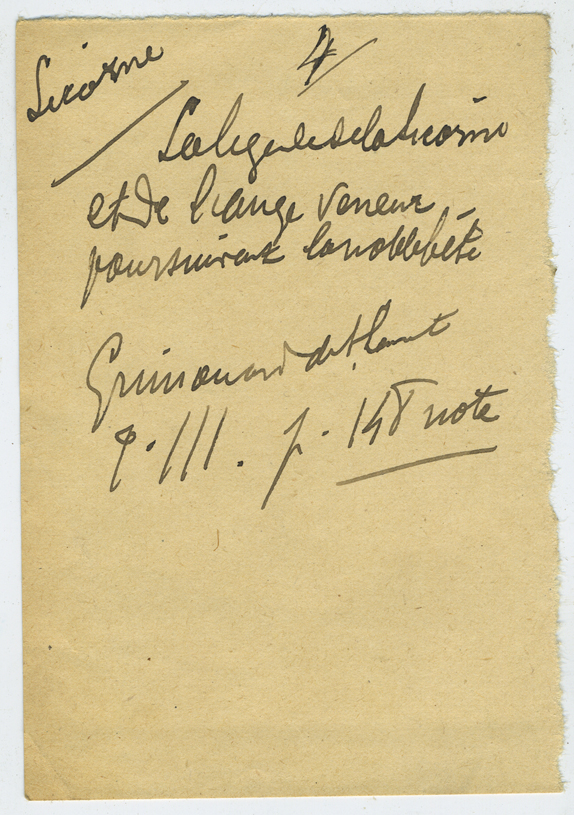 Licorne
4
La légende de la Licorne
et de l'ange veneur
poursuivant la noble bête
Grimouard de St Laurent
T. III. p. 148 note